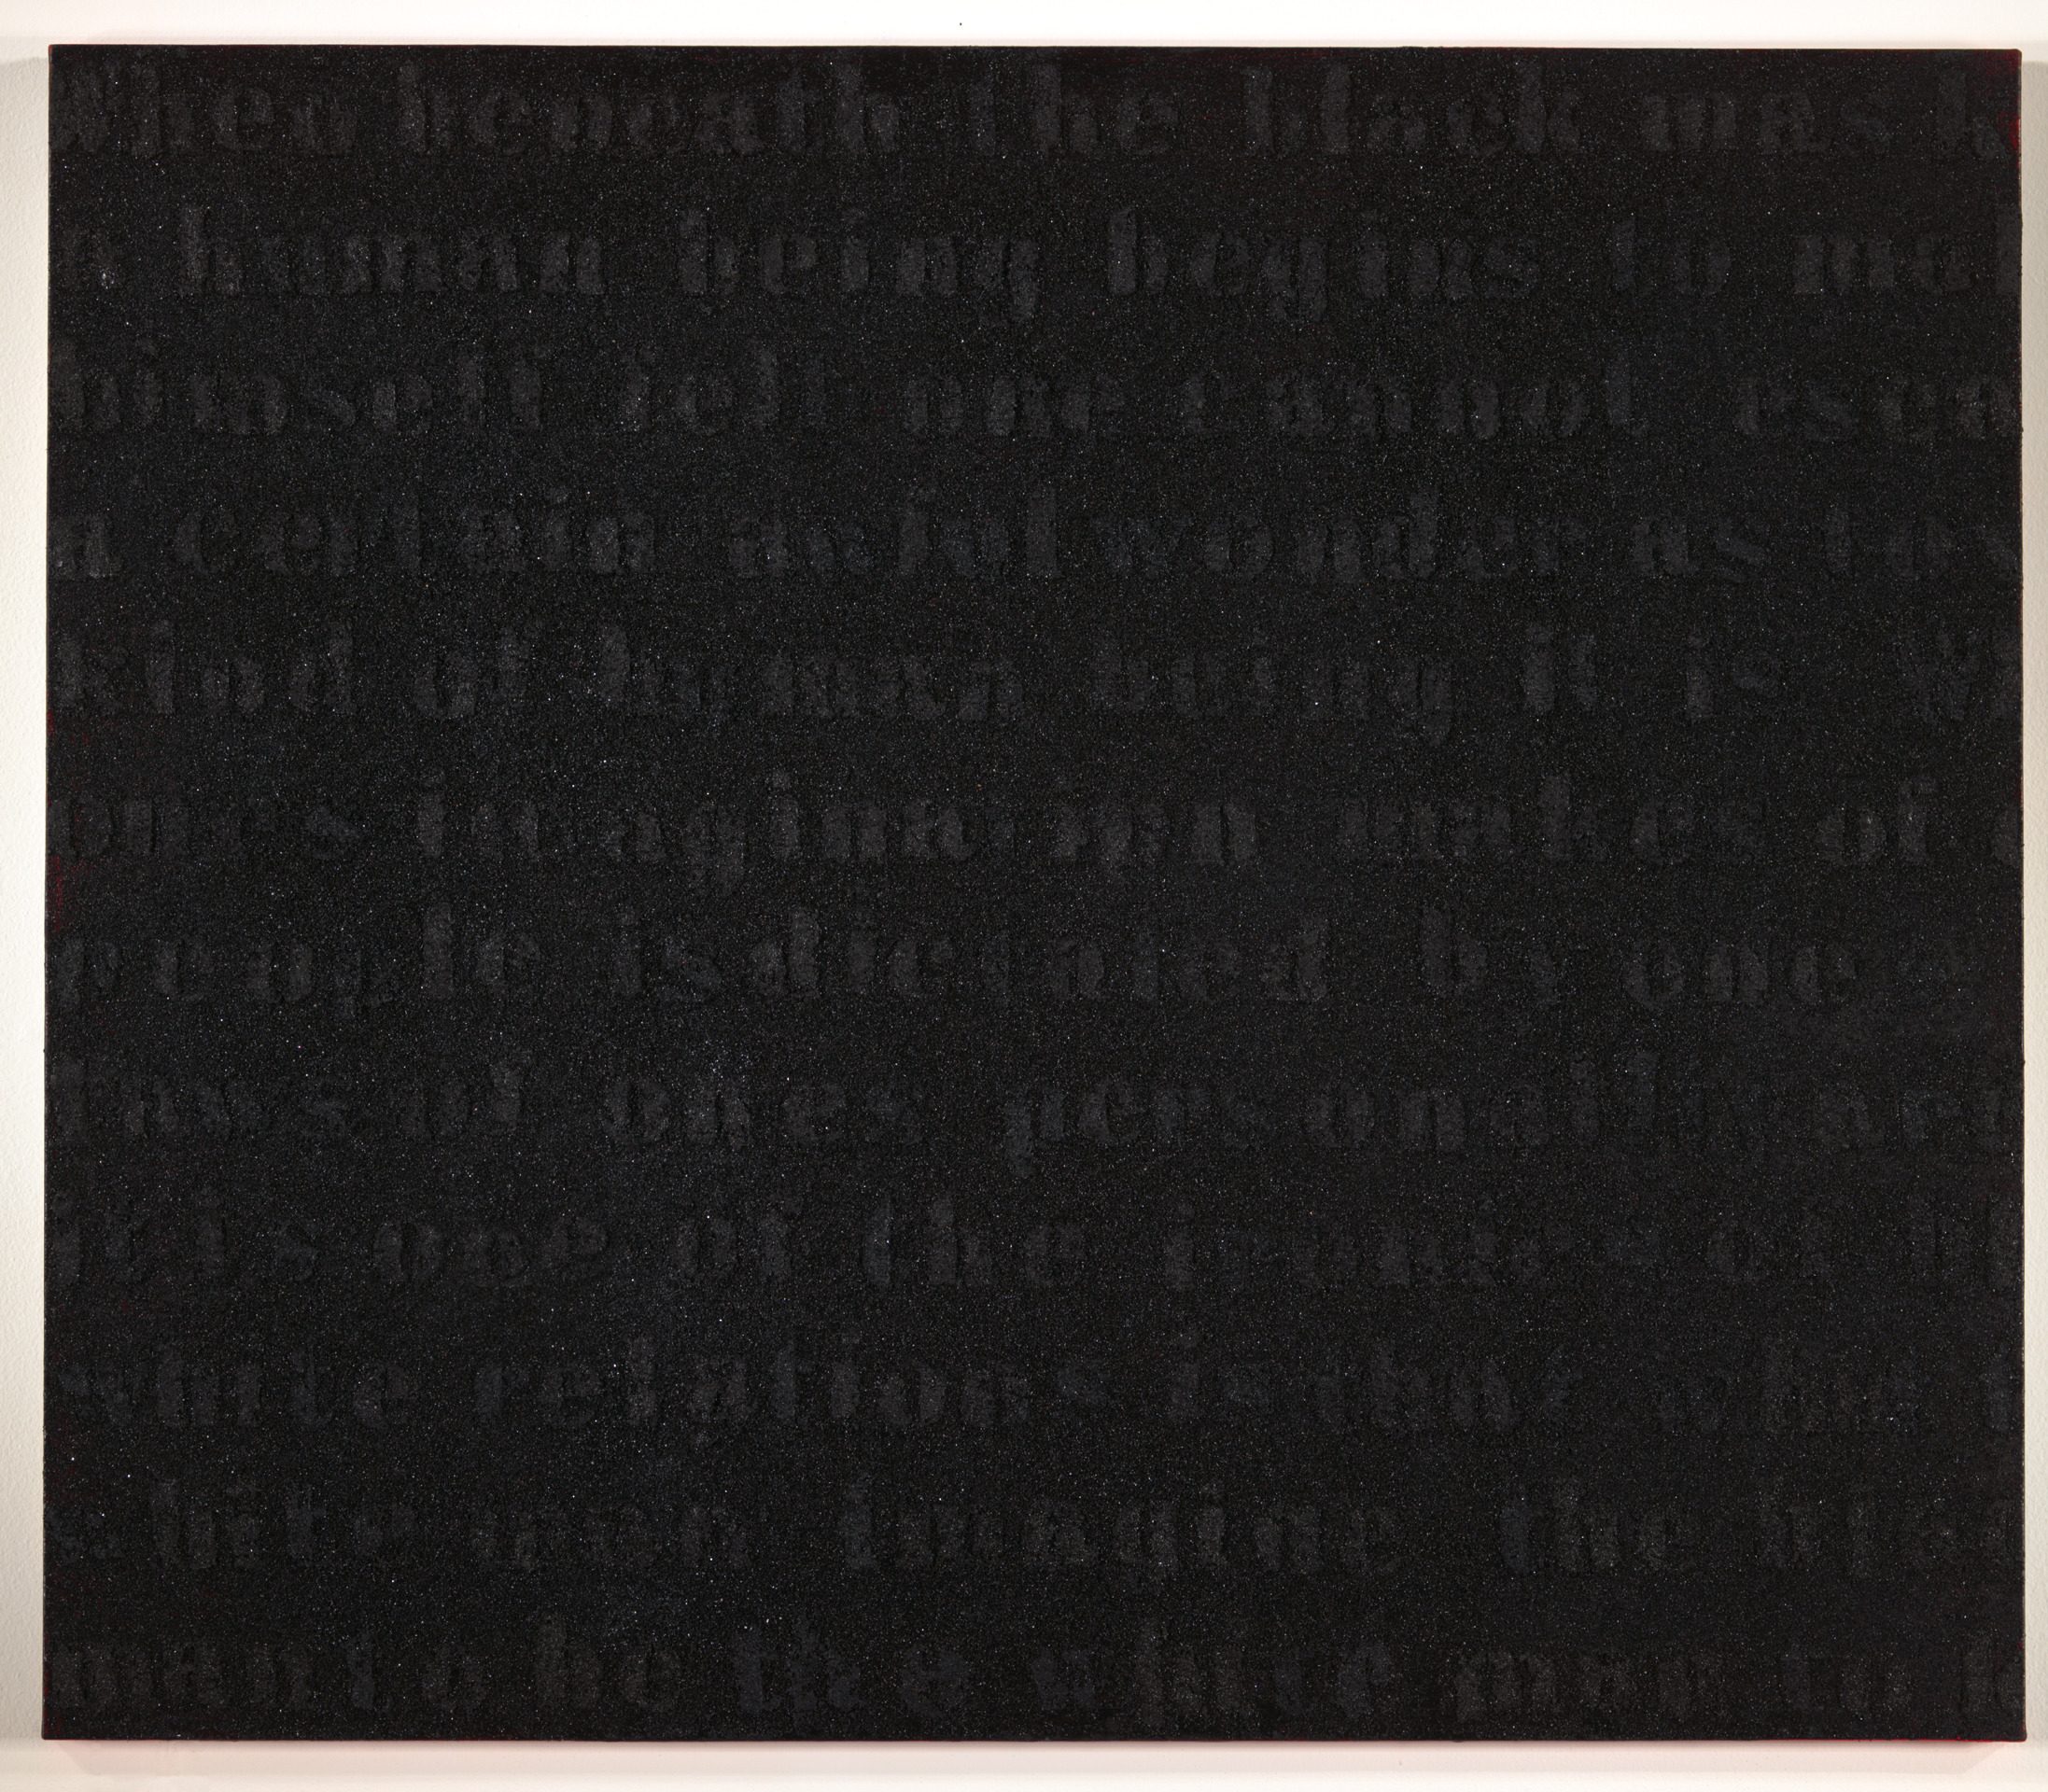 When beneath the black mask
a human being begins to mak
himself felt one cannot esca
a certain awful wonder as to w
kind of human being it is. W
ones imagination makes of
people is dictated by one
laws of ones personality and
it is one of the ironies of bl
white relations is that
white man imagine the bla
man to be the white man